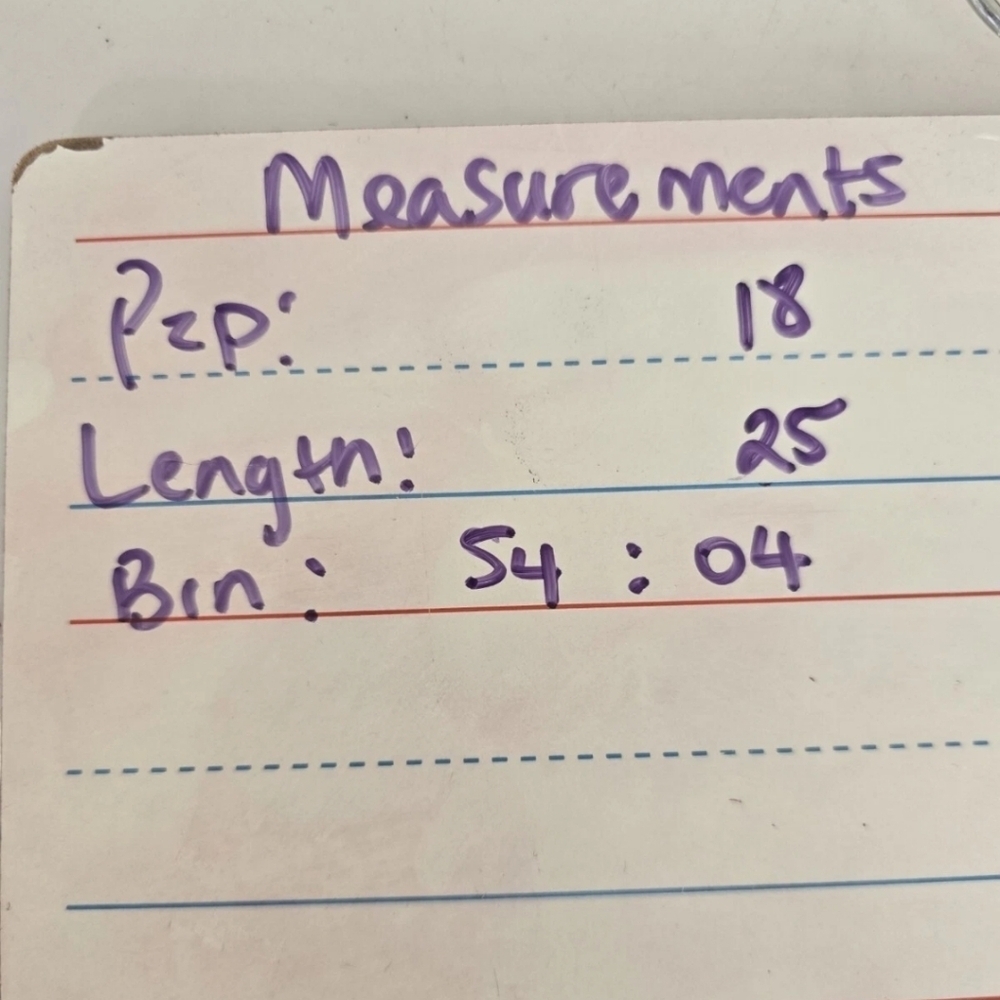 Measurements
P2P: 18
Length: 25
Bin: 54 : 04